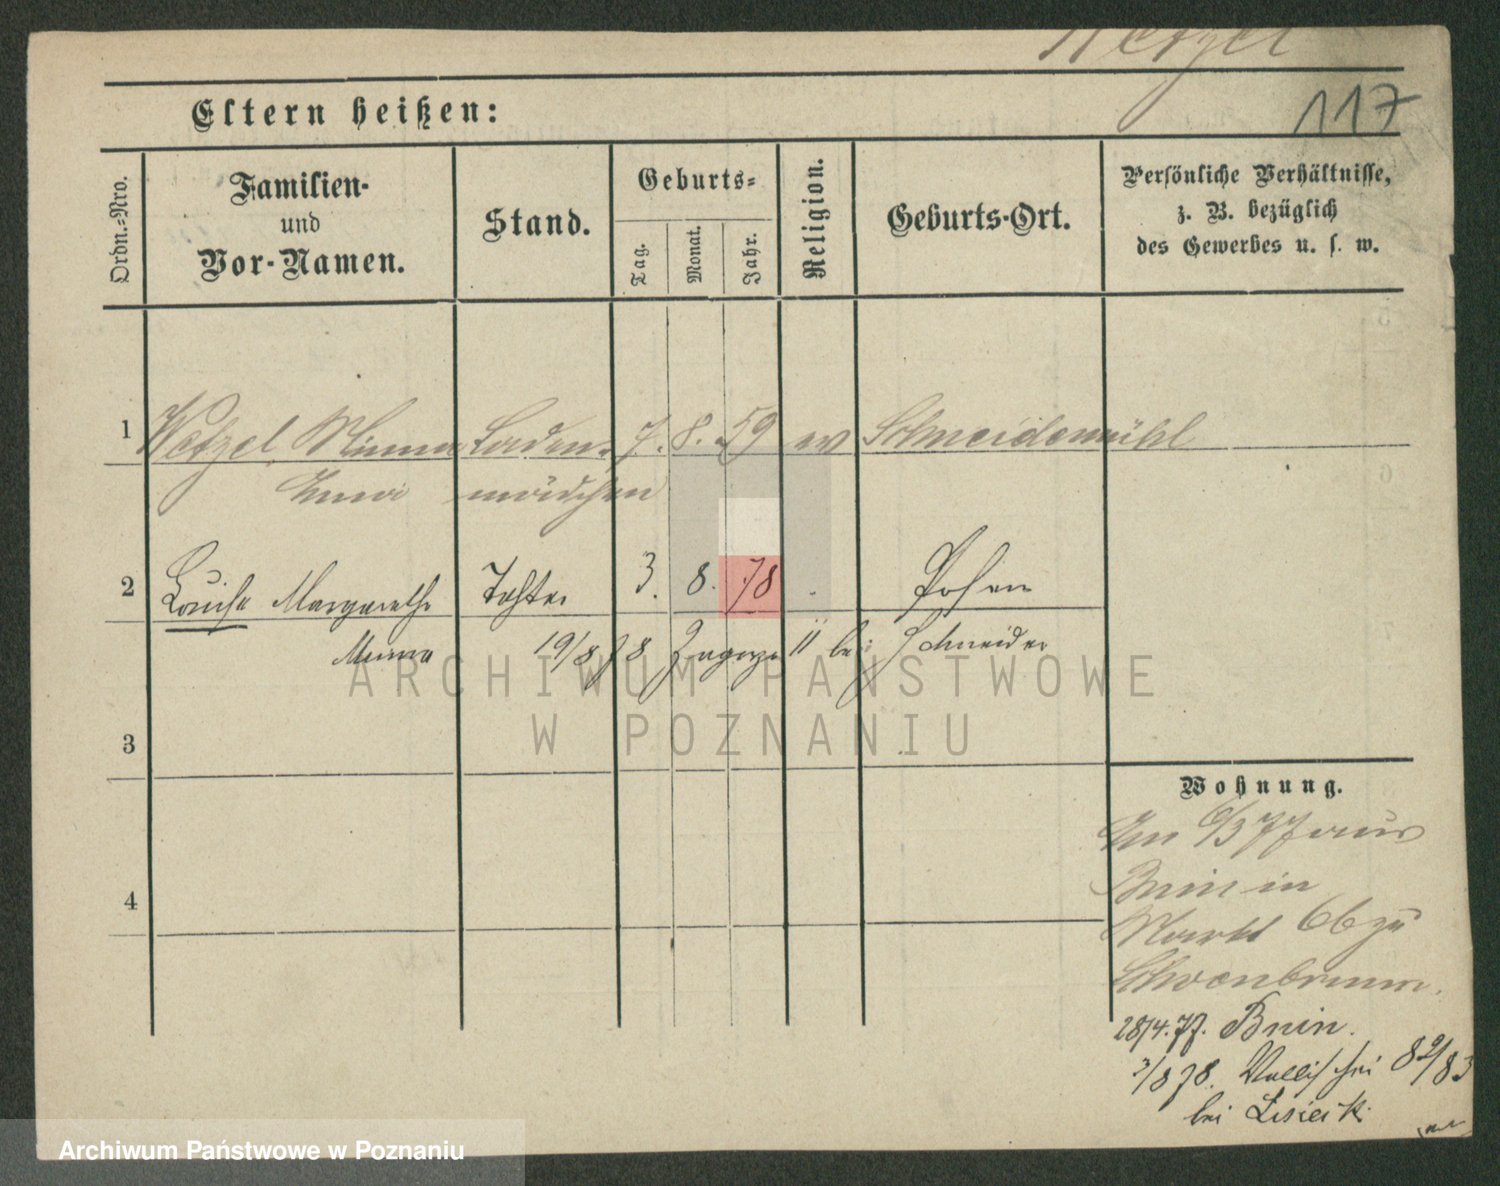 Wetzel
117
Eltern heißen:
Ordn.-Nro.
Familien-
und
Vor-Namen.
Stand.
Geburts-
Tag.
Monat.
Jahr.
Religion.
Geburts-Ort.
Persönliche Verhältnisse,
z. B. bezüglich
des Gewerbes u. s. w.
1 Wetzel Minna Laden- 7. 8. 59 ev Schneidemühl
mädchen
2 Louise Margarethe Tochter 3. 8. 78 Posen
Minna 19/8 78 Zagorze 11 bei Schneider
3
4
Wohnung.
Am 6/3 77 aus
Bnin in
Markt 66 zu
Schoenbrunn.
28/4. 77. Bnin.
3/8 78. Wallischei 82/83
bei Lisiecki
ARCHIWUM PAŃSTWOWE
W POZNANIU
Archiwum Państwowe w Poznaniu